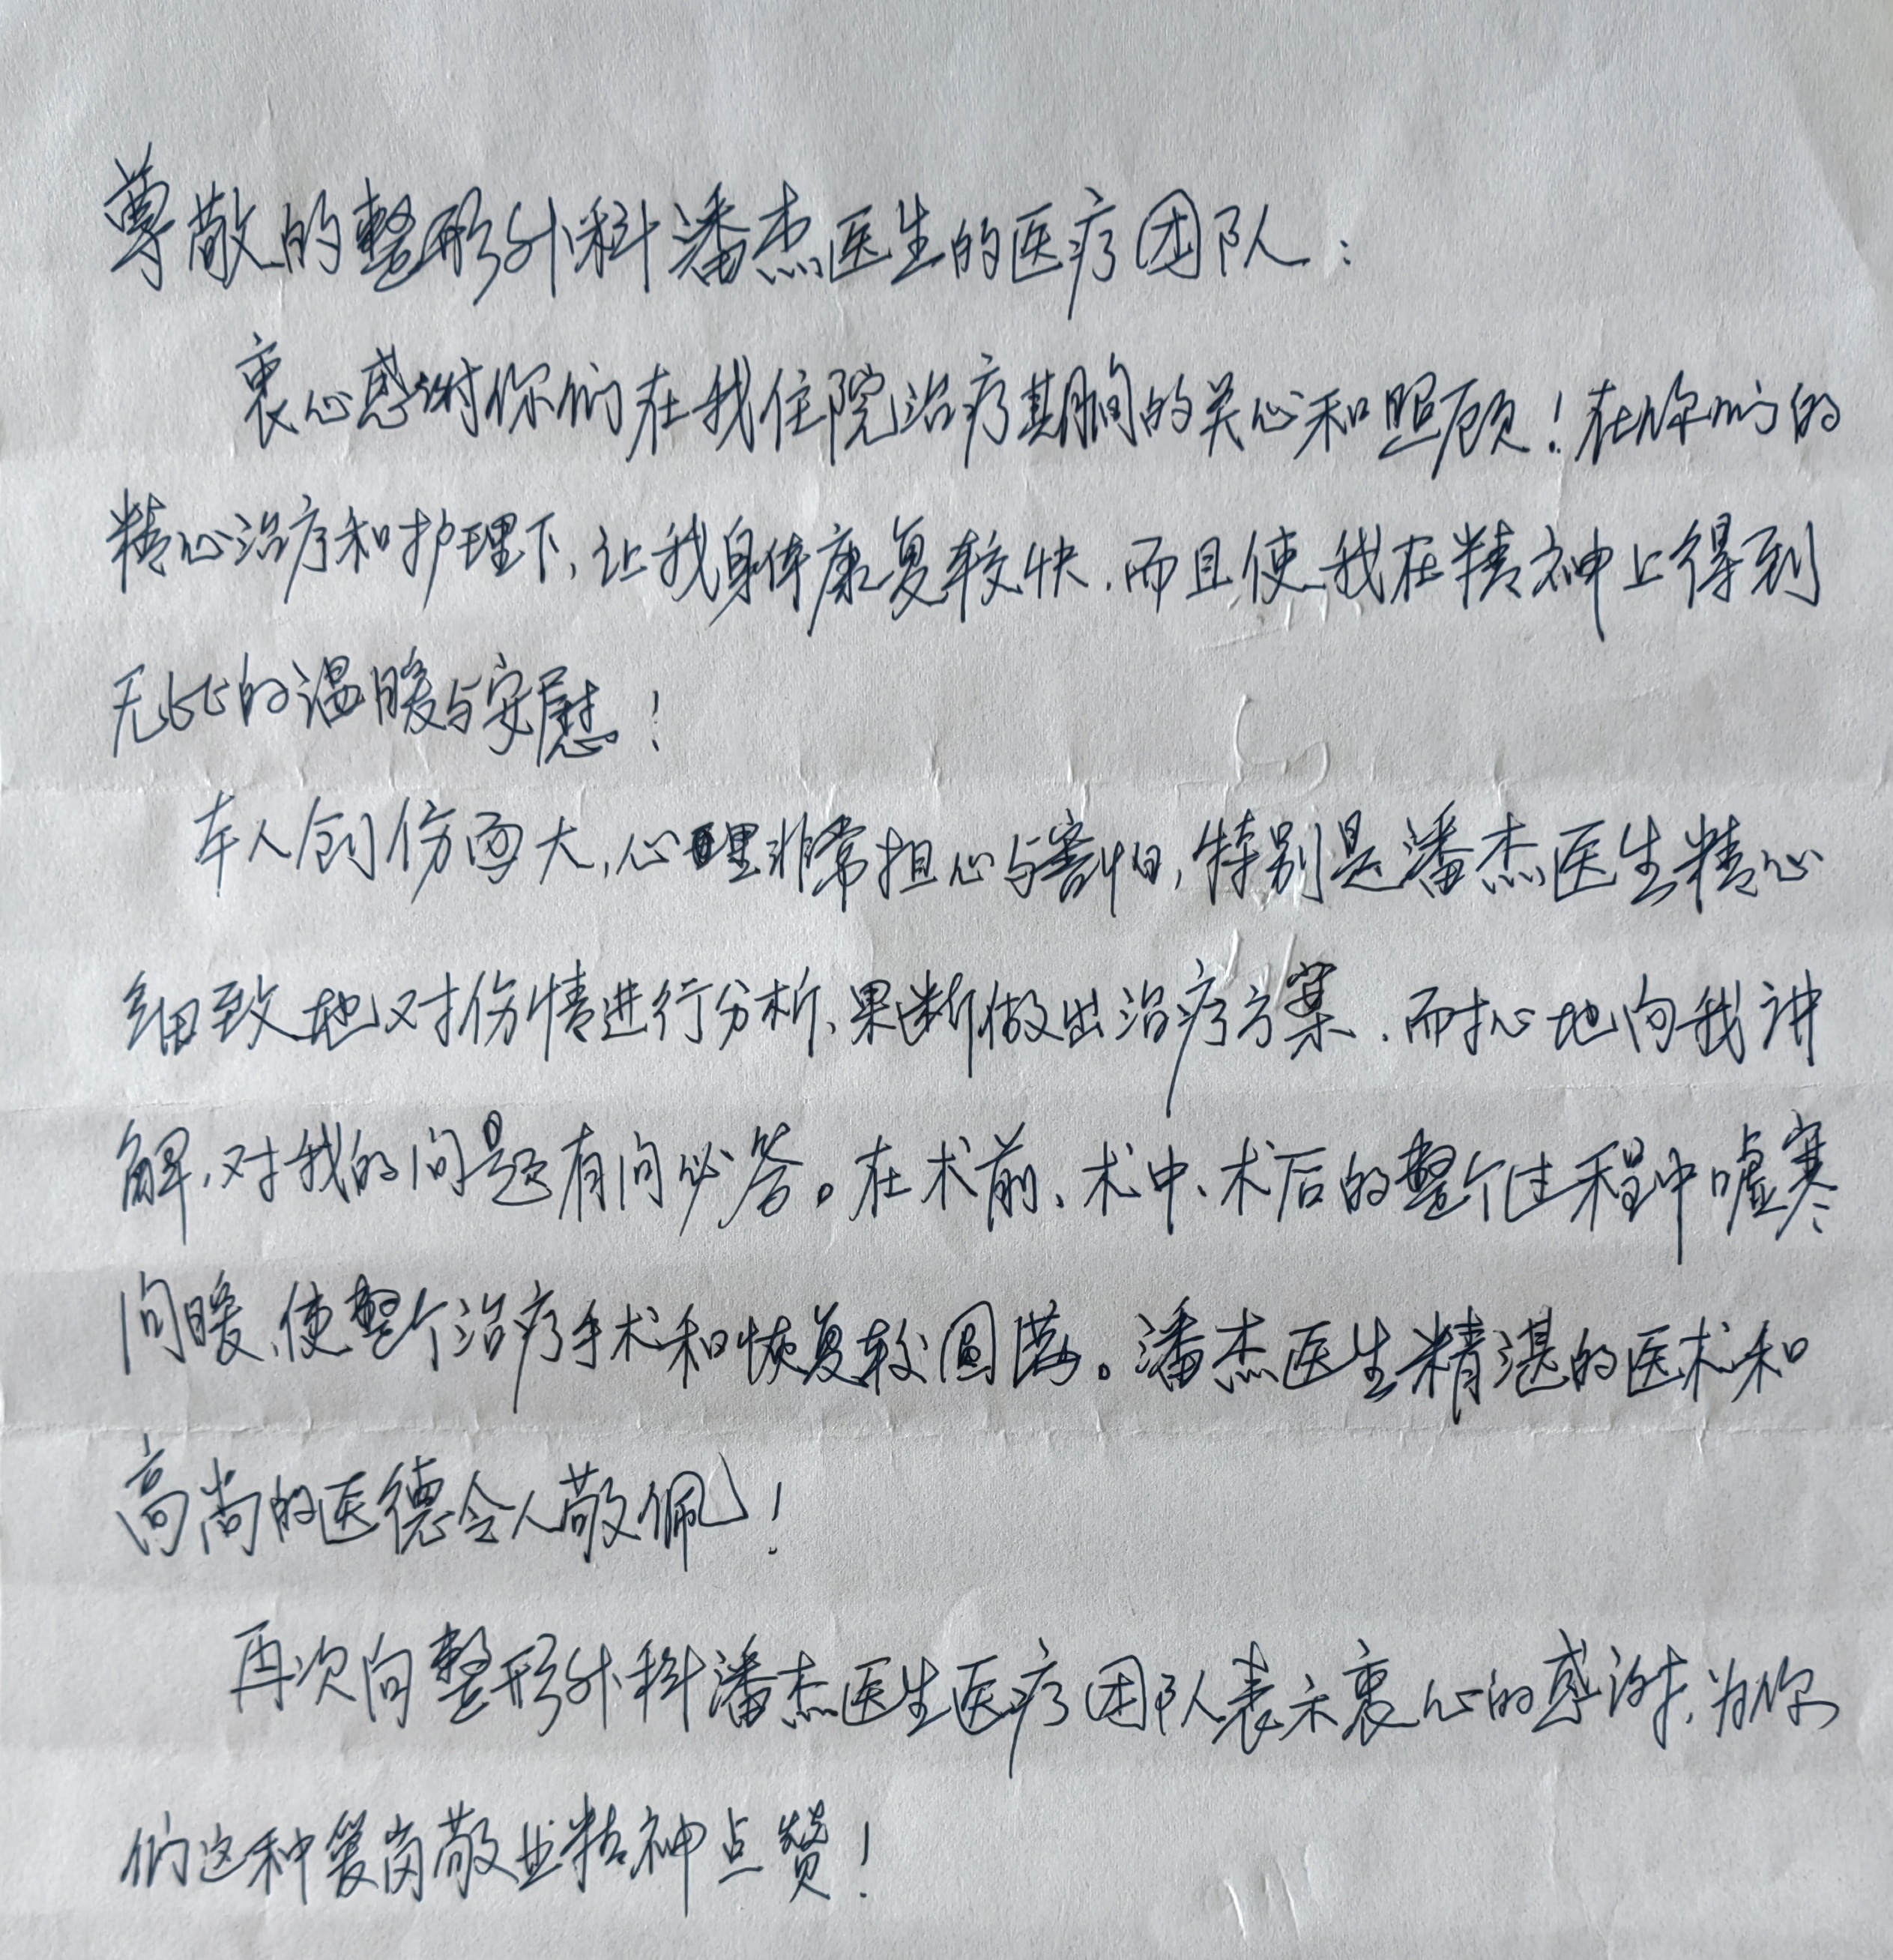 尊敬的整形外科潘杰医生的医疗团队：
衷心感谢你们在我住院治疗期间的关心和照顾！在你们的
精心治疗和护理下，让我身体康复较快，而且使我在精神上得到
无比的温暖与安慰！
本人创伤面大，心理非常担心与害怕，特别是潘杰医生精心
细致地对伤情进行分析、果断做出治疗方案，耐心地向我讲
解，对我的问题有问必答。在术前、术中、术后的整个过程中嘘寒
问暖，使整个治疗手术和恢复较圆满。潘杰医生精湛的医术和
高尚的医德令人敬佩！
再次向整形外科潘杰医生医疗团队表示衷心的感谢，为你
们这种爱岗敬业精神点赞！